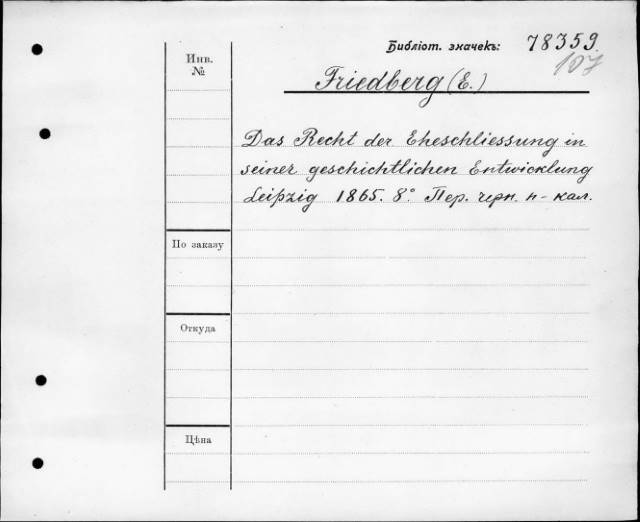 Библіот. значекъ: 78359
107
Инв. №
Friedberg (E.)
Das Recht der Eheschliessung in
seiner geschichtlichen Entwicklung
Leipzig 1865. 8° Пер. черн. п-кал.
По заказу
Откуда
Цѣна